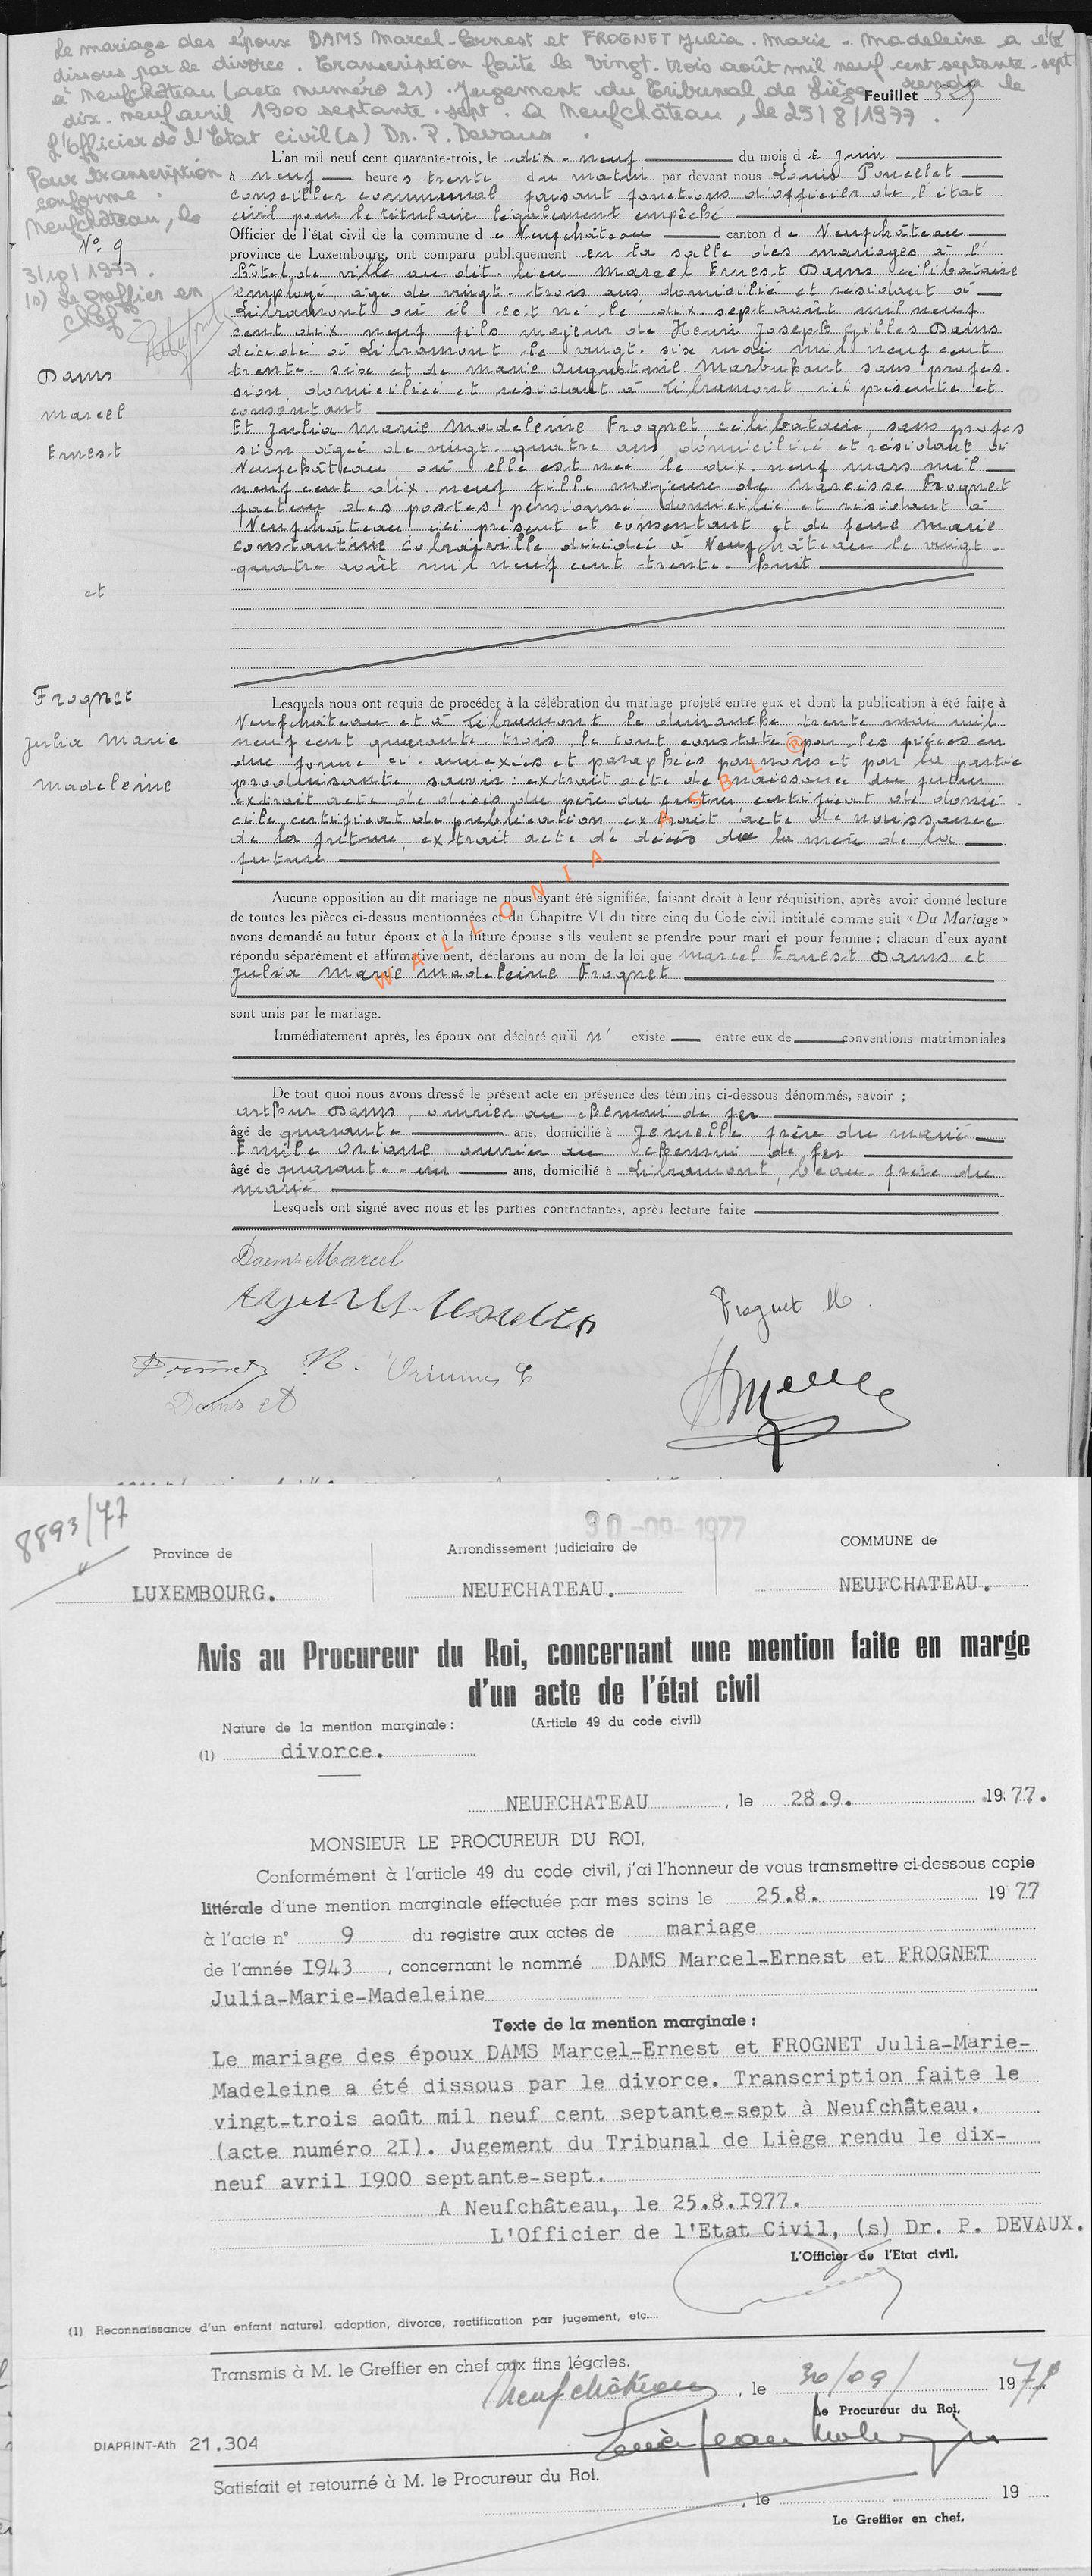 Le mariage des époux DAMS Marcel-Ernest et FROGNET Julia. Marie - Madeleine a été
dissous par le divorce. Transcription faite le vingt-trois août mil neuf cent septante-sept
à Neufchâteau (acte numéro 21). Jugement du Tribunal de Liège rendu le
dix-neuf avril 1900 septante-sept. A Neufchâteau, le 25/8/1977.
L'officier de l'Etat civil (s) Dr. P. Devaux.
Feuillet
Pour transcription
conforme.
Neufchâteau, le
3/10/1977.
(s) Le Greffier en
chef.
N° 9
Dams
Marcel
Ernest
et
Frognet
Julia Marie
Madeleine
L'an mil neuf cent quarante-trois, le dix-neuf du mois d e Juin
à neuf heures trente du matin par devant nous Louis Poncelet
conseiller communal faisant fonctions d'officier de l'état
civil pour le titulaire légalement empêché
Officier de l'état civil de la commune d e Neufchâteau canton d e Neufchâteau
province de Luxembourg, ont comparu publiquement en la salle des mariages à l'
hôtel de ville au dit-lieu Marcel Ernest Dams, célibataire
employé, âgé de vingt-trois ans, domicilié et résidant à
Libramont où il est né le dix-sept août mil neuf
cent dix-neuf fils majeur de Henri Joseph Gilles Dams
décédé à Libramont le vingt-six mai mil neuf cent
trente-six et de Marie Augustine Marbehant sans profes-
sion, domiciliée et résidant à Libramont ici présente et
consentant
Et Julia Marie Madeleine Frognet célibataire, sans profes
sion, âgée de vingt-quatre ans, domiciliée et résidant à
Neufchâteau où elle est née le dix-neuf mars mil
neuf cent dix-neuf fille majeure de Narcisse Frognet
facteur des postes pensionné, domicilié et résidant à
Neufchâteau ici présent et consentant et de feue Marie
Constantine Collaiville décédée à Neufchâteau le vingt-
quatre août mil neuf cent trente-huit
Lesquels nous ont requis de procéder à la célébration du mariage projeté entre eux et dont la publication à été faite à
Neufchâteau et à Libramont le dimanche trente mai mil
neuf cent quarante-trois, le tout constaté par les pièces en
due forme ci-annexées et paraphées par nous et par la partie
produisante savoir: extrait acte de naissance du futur
extrait acte de décès du père du futur, certificat de domi-
cile, certificat de publication extrait acte de naissance
de la future, extrait acte de décès de la mère de la
future
Aucune opposition au dit mariage ne nous ayant été signifiée, faisant droit à leur réquisition, après avoir donné lecture
de toutes les pièces ci-dessus mentionnées et du Chapitre VI du titre cinq du Code civil intitulé comme suit « Du Mariage »
avons demandé au futur époux et à la future épouse s'ils veulent se prendre pour mari et pour femme ; chacun d'eux ayant
répondu séparément et affirmativement, déclarons au nom de la loi que Marcel Ernest Dams et
Julia Marie Madeleine Frognet
WALLONIA ASBL ®
sont unis par le mariage.
Immédiatement après, les époux ont déclaré qu'il n' existe entre eux de conventions matrimoniales
De tout quoi nous avons dressé le présent acte en présence des témoins ci-dessous dénommés, savoir ;
Arthur Dams, ouvrier au chemin de fer
âgé de quarante ans, domicilié à Jemelle frère du marié
Emile Oriane ouvrier au chemin de fer
âgé de quarante-un ans, domicilié à Libramont, beau-frère du
marié
Lesquels ont signé avec nous et les parties contractantes, après lecture faite
Dams Marcel
Frognet
Dams
8893/77
30-09-1977
Province de
LUXEMBOURG.
Arrondissement judiciaire de
NEUFCHATEAU.
COMMUNE de
NEUFCHATEAU.
Avis au Procureur du Roi, concernant une mention faite en marge
d'un acte de l'état civil
(Article 49 du code civil)
Nature de la mention marginale :
(1) divorce.
NEUFCHATEAU , le 28.9. 1977.
MONSIEUR LE PROCUREUR DU ROI,
Conformément à l'article 49 du code civil, j'ai l'honneur de vous transmettre ci-dessous copie
littérale d'une mention marginale effectuée par mes soins le 25.8. 1977
à l'acte n° 9 du registre aux actes de mariage
de l'année I943 , concernant le nommé DAMS Marcel-Ernest et FROGNET
Julia-Marie-Madeleine
Texte de la mention marginale :
Le mariage des époux DAMS Marcel-Ernest et FROGNET Julia-Marie-
Madeleine a été dissous par le divorce. Transcription faite le
vingt-trois août mil neuf cent septante-sept à Neufchâteau.
(acte numéro 2I). Jugement du Tribunal de Liège rendu le dix-
neuf avril I900 septante-sept.
A Neufchâteau, le 25.8.I977.
L'Officier de l'Etat Civil, (s) Dr. P. DEVAUX.
L'Officier de l'Etat civil,
(1) Reconnaissance d'un enfant naturel, adoption, divorce, rectification par jugement, etc....
Transmis à M. le Greffier en chef aux fins légales.
Neufchâteau , le 30/09/ 1977
Le Procureur du Roi,
DIAPRINT-Ath 21.304
Satisfait et retourné à M. le Procureur du Roi.
, le 19
Le Greffier en chef,